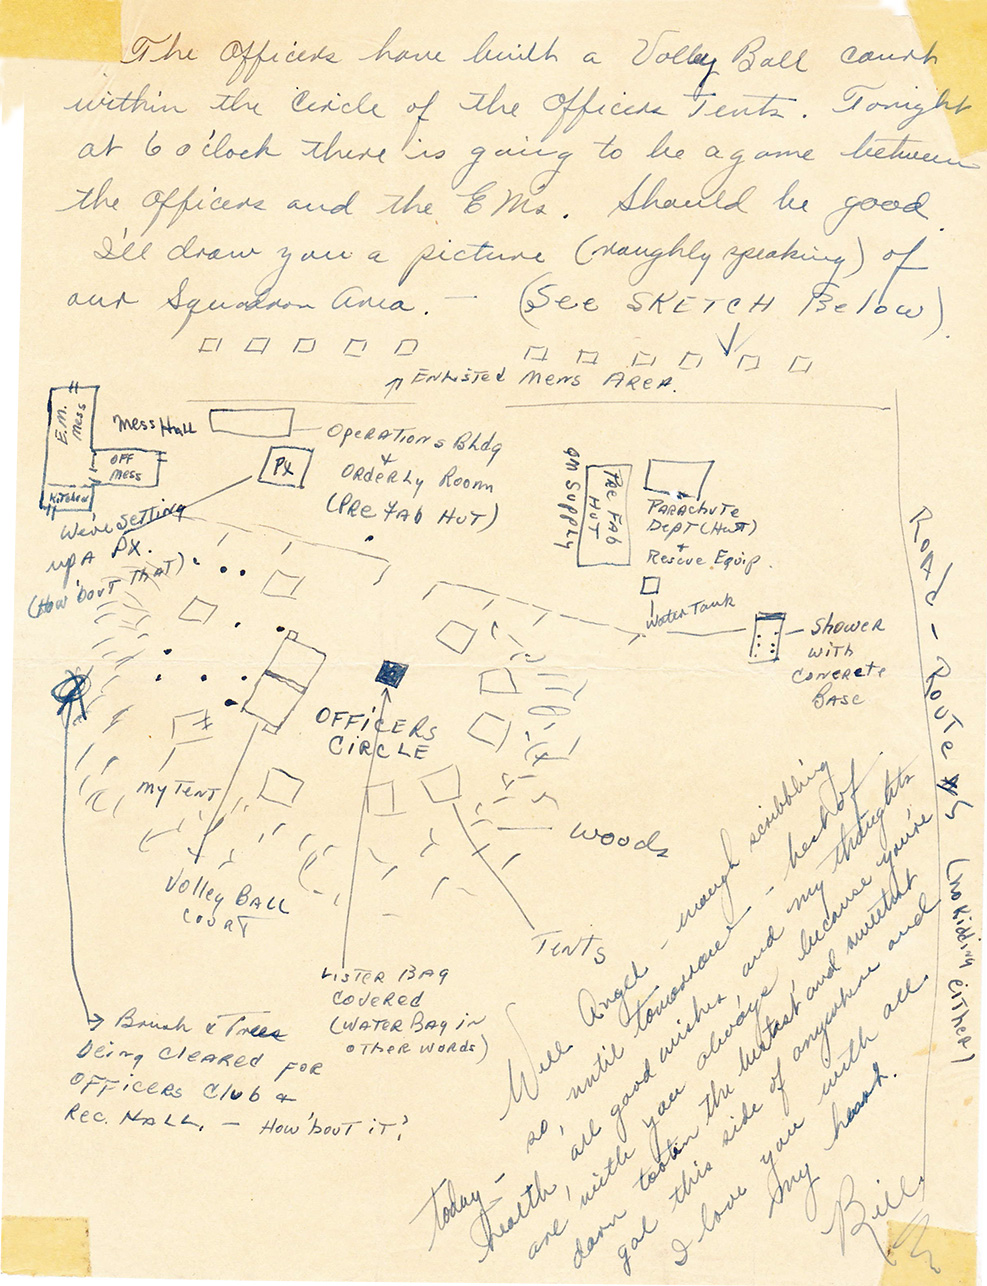 The Officers have built a Volley Ball court
within the Circle of the Officers Tents. Tonight
at 6 o'clock there is going to be a game between
the officers and the EMs. Should be good.
I'll draw you a picture (roughly speaking) of
our Squadron Area. — (See SKETCH Below).
Enlisted Mens Area.
E.M. Mess
Mess Hall
OFF Mess
Kitchen
Operations Bldg
+
Orderly Room
(Pre Fab Hut)
PX
We're setting
up A PX.
(How 'bout That)
QM Supply
Pre Fab
Hut
Parachute
Dept (Hut)
+
Rescue Equip.
Water Tank
Shower
with
concrete
Base
Road - Route #5 (No kidding either)
Officers
Circle
My Tent
Volley Ball
Court
Woods
Tents
Lister Bag
covered
(Water Bag in
other words)
Brush & Trees
being cleared for
Officers Club &
Rec. Hall. — How 'bout it?
Well Angel - enough scribbling
so, until tomorrow - heck of
today - all good wishes and my thoughts
health, are with you always, because you're
darn tooten the bestest and sweetest
gal this side of anywhere and
I love you with all
my heart.
Bill